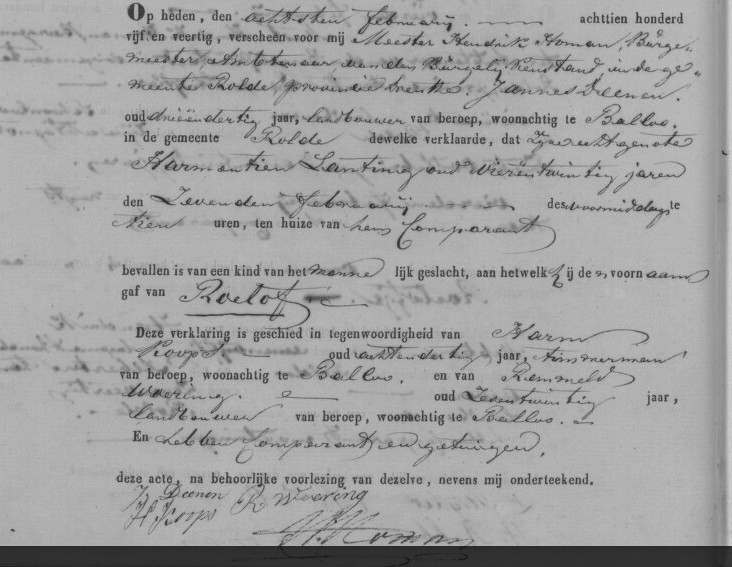 Op heden, den achtsten februarij achttien honderd
vijf en veertig, verscheen voor mij Meester Hendrik Homan, Burge-
meester, Ambtenaar van den Burgerlij. Kenstand in de ge-
meente Rolde, provincie Drenthe: Jannes Deenen.
oud drieëndertig jaar, landbouwer van beroep, woonachtig te Balloo.
in de gemeente Rolde dewelke verklaarde, dat zijne echtgenote
Harmentien Lanting oud vierentwintig jaren
den Zevenden februarij des voormiddags te
tien uren, ten huize van hem Comparant
bevallen is van een kind van het manne lijk geslacht, aan hetwelk hij de n voornaam
gaf van Roelof
Deze verklaring is geschied in tegenwoordigheid van Harm
Koops oud achtendertig jaar, timmerman
van beroep, woonachtig te Balloo. en van Remmelt
Woering. oud Zesentwintig jaar,
landbouwer van beroep, woonachtig te Balloo.
En hebben Comparant en getuigen,
deze acte, na behoorlijke voorlezing van dezelve, nevens mij onderteekend.
J Deenen R Woering
H Koops
H Homan